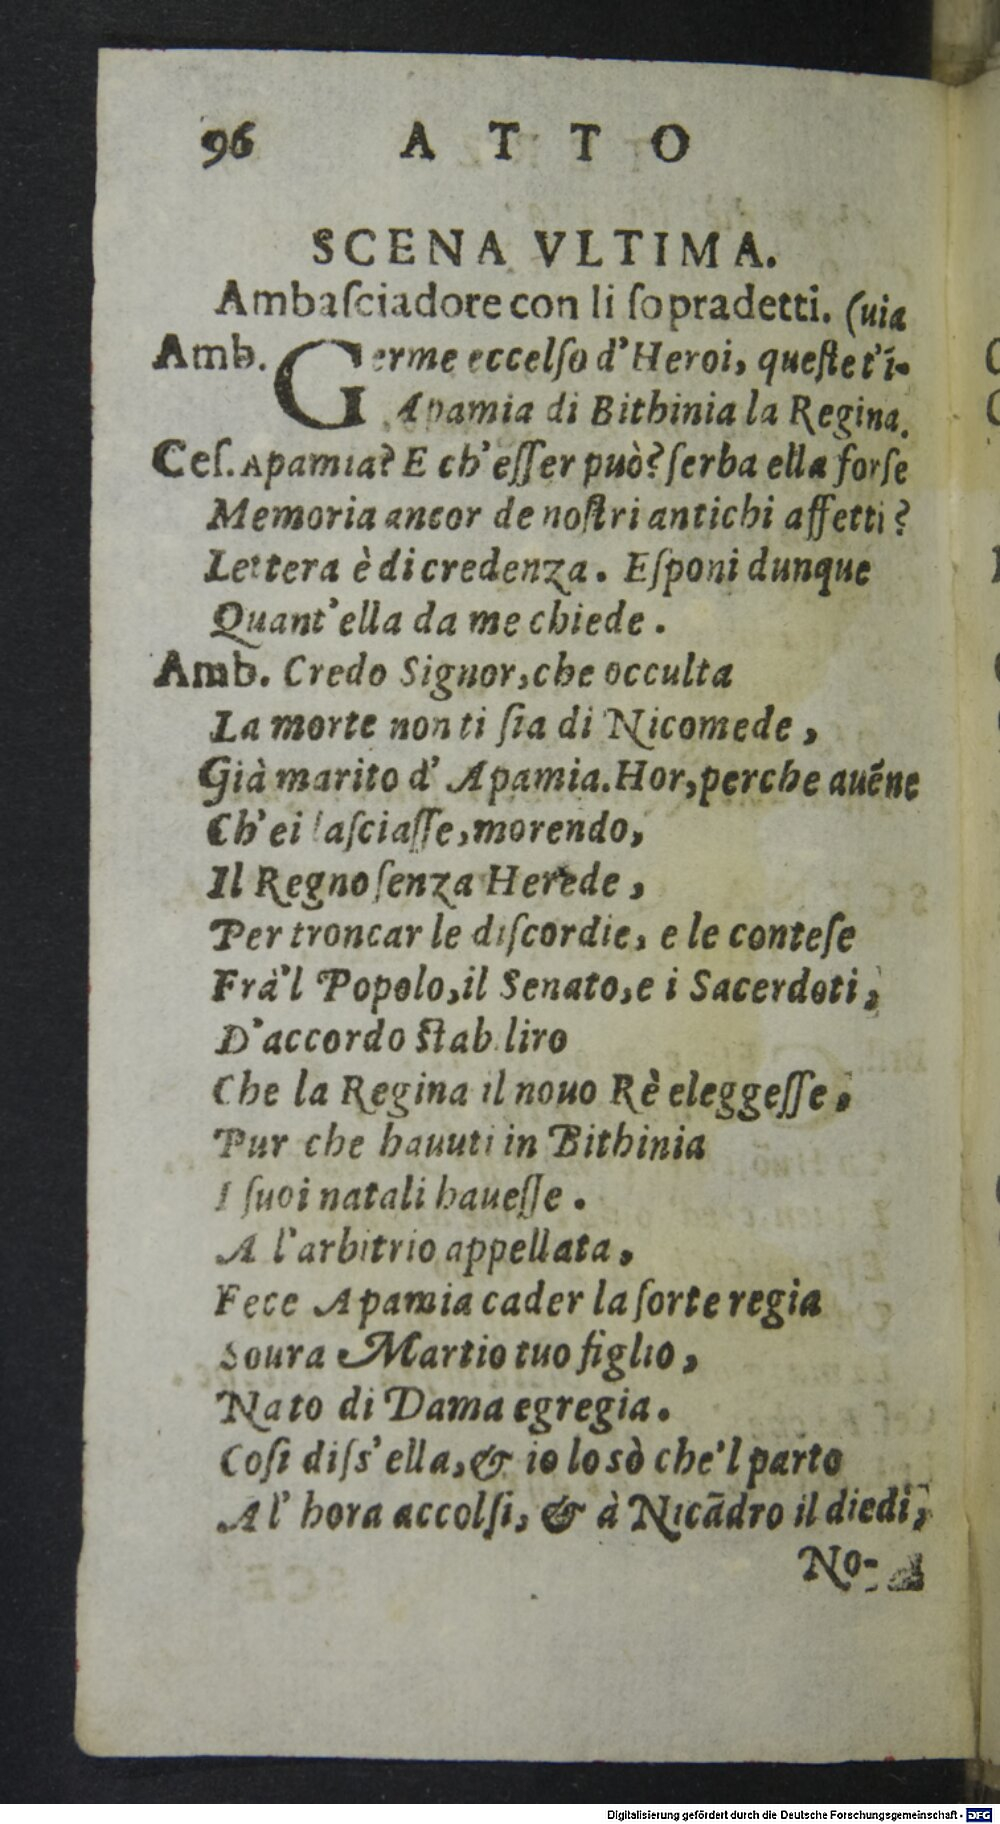 96 ATTO
SCENA VLTIMA.
Ambaſciadore con li ſopradetti. (uia
Amb. Germe eccelſo d'Heroi, queſte t'ī-
Apamia di Bithinia la Regina.
Ceſ. Apamia? E ch'eſſer può? ſerba ella forſe
Memoria ancor de noſtri antichi affetti?
Lettera è di credenza. Eſponi dunque
Quant'ella da me chiede.
Amb. Credo Signor, che occulta
La morte non ti ſia di Nicomede,
Già marito d'Apamia. Hor, perche auēne
Ch'ei laſciaſſe, morendo,
Il Regno ſenza Herede,
Per troncar le diſcordie, e le conteſe
Frà'l Popolo, il Senato, e i Sacerdoti,
D'accordo ſtabliro
Che la Regina il nouo Rè eleggeſſe,
Pur che hauuti in Bithinia
I ſuoi natali haueſſe.
A l'arbitrio appellata,
Fece Apamia cader la ſorte regia
Soura Martio tuo figlio,
Nato di Dama egregia.
Coſi diſs'ella, & io lo sò che'l parto
Al'hora accolſi, & à Nicādro il diedi,
No-
Digitalisierung gefördert durch die Deutsche Forschungsgemeinschaft - DFG